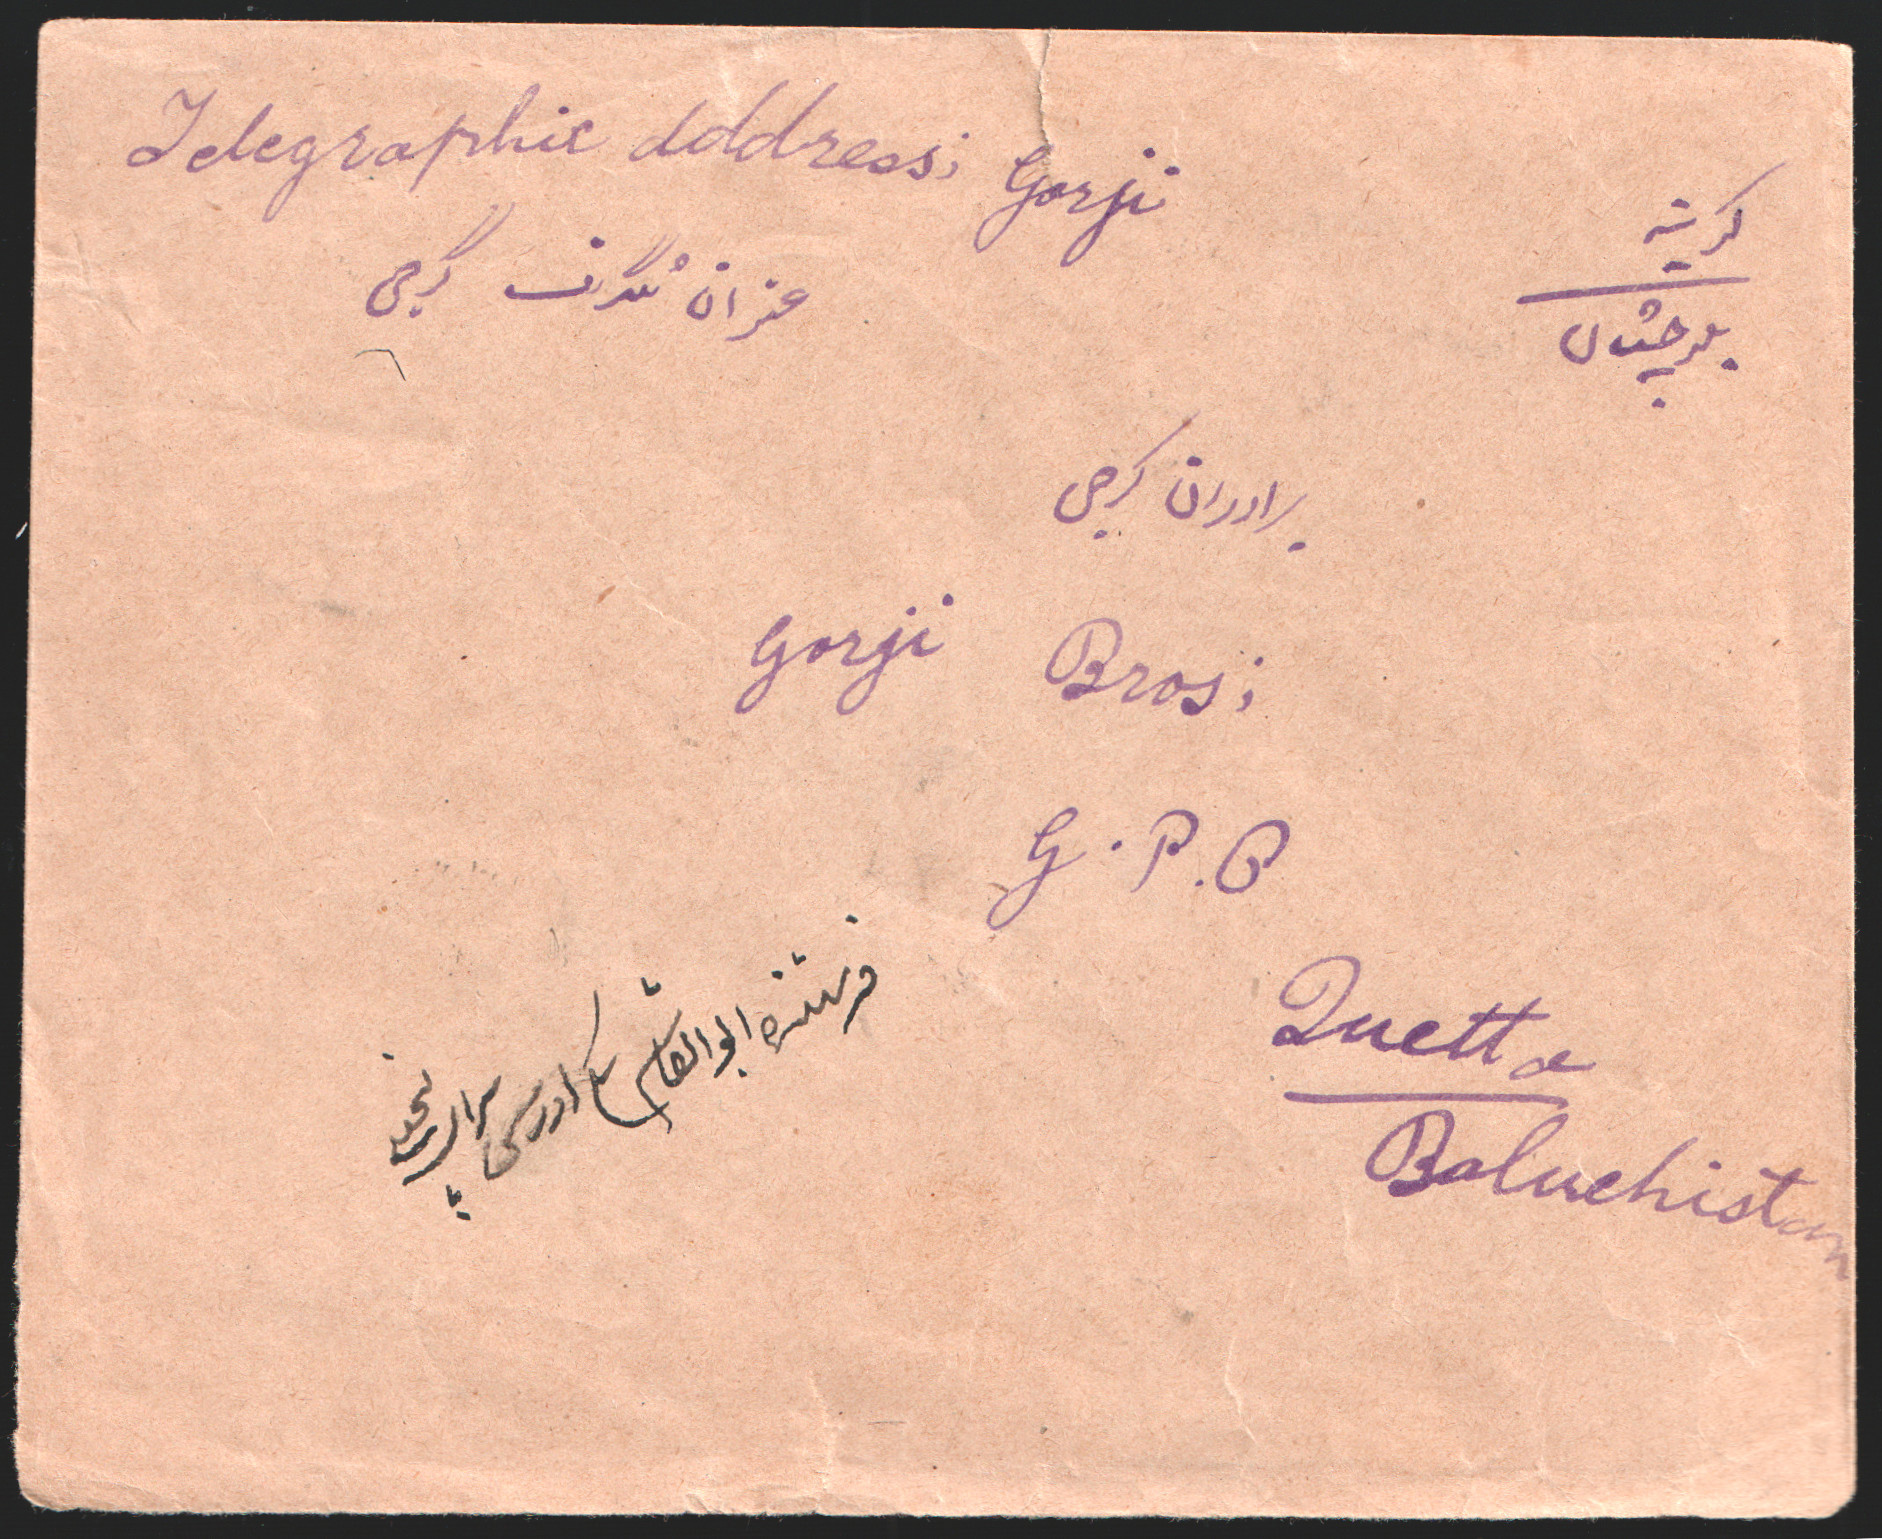 Telegraphic Address; Gorji
عنوان تلگرافی گرجی
کویته
بلوچستان
برادران گرجی
Gorji Bros;
G.P.O
Quetta
Baluchistan
فرستنده ابوالقاسم